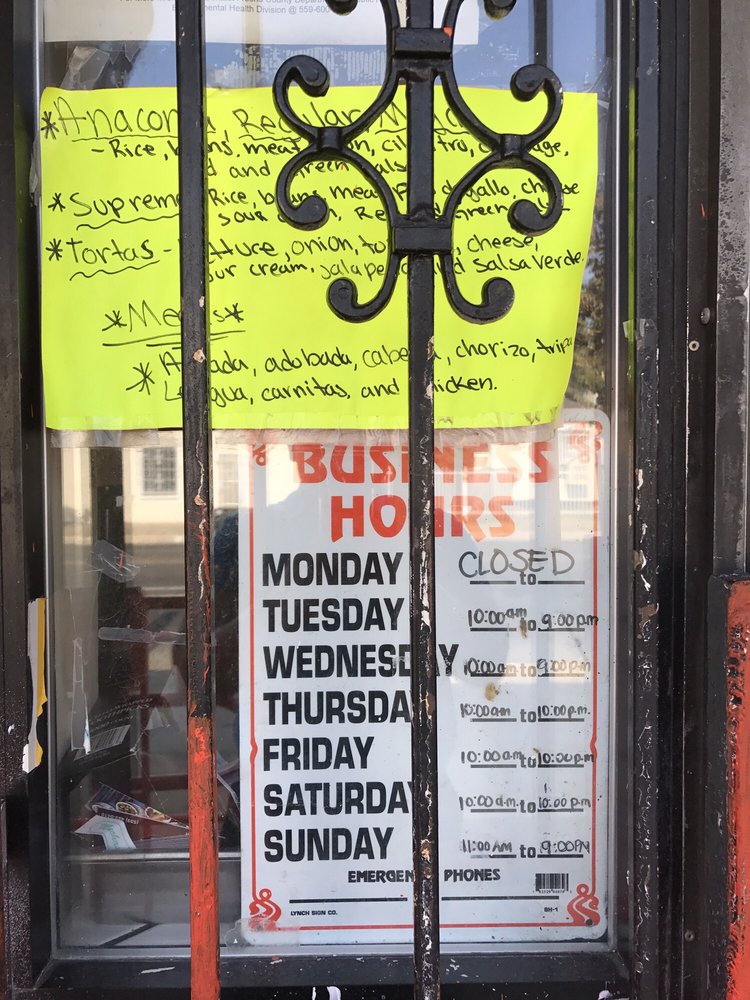 Environmental Health Division @ 559-600
*Anaconda, Regular,
-Rice, beans, meat, onion, cilantro, cabbage,
red and green salsa
*Supreme Rice, beans, meat, pico de gallo, cheese
sour cream, Red and green salsa-
*Tortas - Lettuce, onion, tomato, cheese,
sour cream, jalapeno and salsa verde.
*Meats*
*Asada, adobada, cabeza, chorizo, tripa
Lengua, carnitas, and chicken.
BUSINESS
HOURS
MONDAY CLOSED to
TUESDAY 10:00am to 9:00pm
WEDNESDAY 10:00am to 9:00pm
THURSDAY 10:00am to 10:00pm.
FRIDAY 10:00am to 10:00pm
SATURDAY 10:00a.m. to 10:00pm
SUNDAY 11:00AM to 9:00PM
EMERGENCY PHONES
LYNCH SIGN CO. BH-1